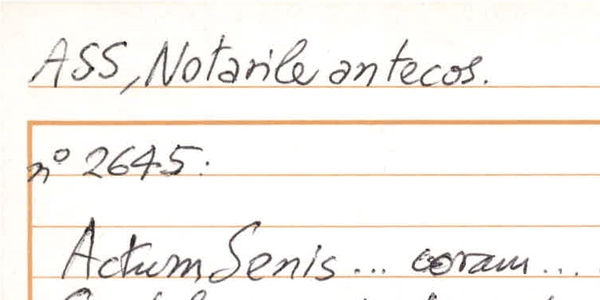 ASS, Notarile antecos.
nº 2645:
Actum Senis... coram...